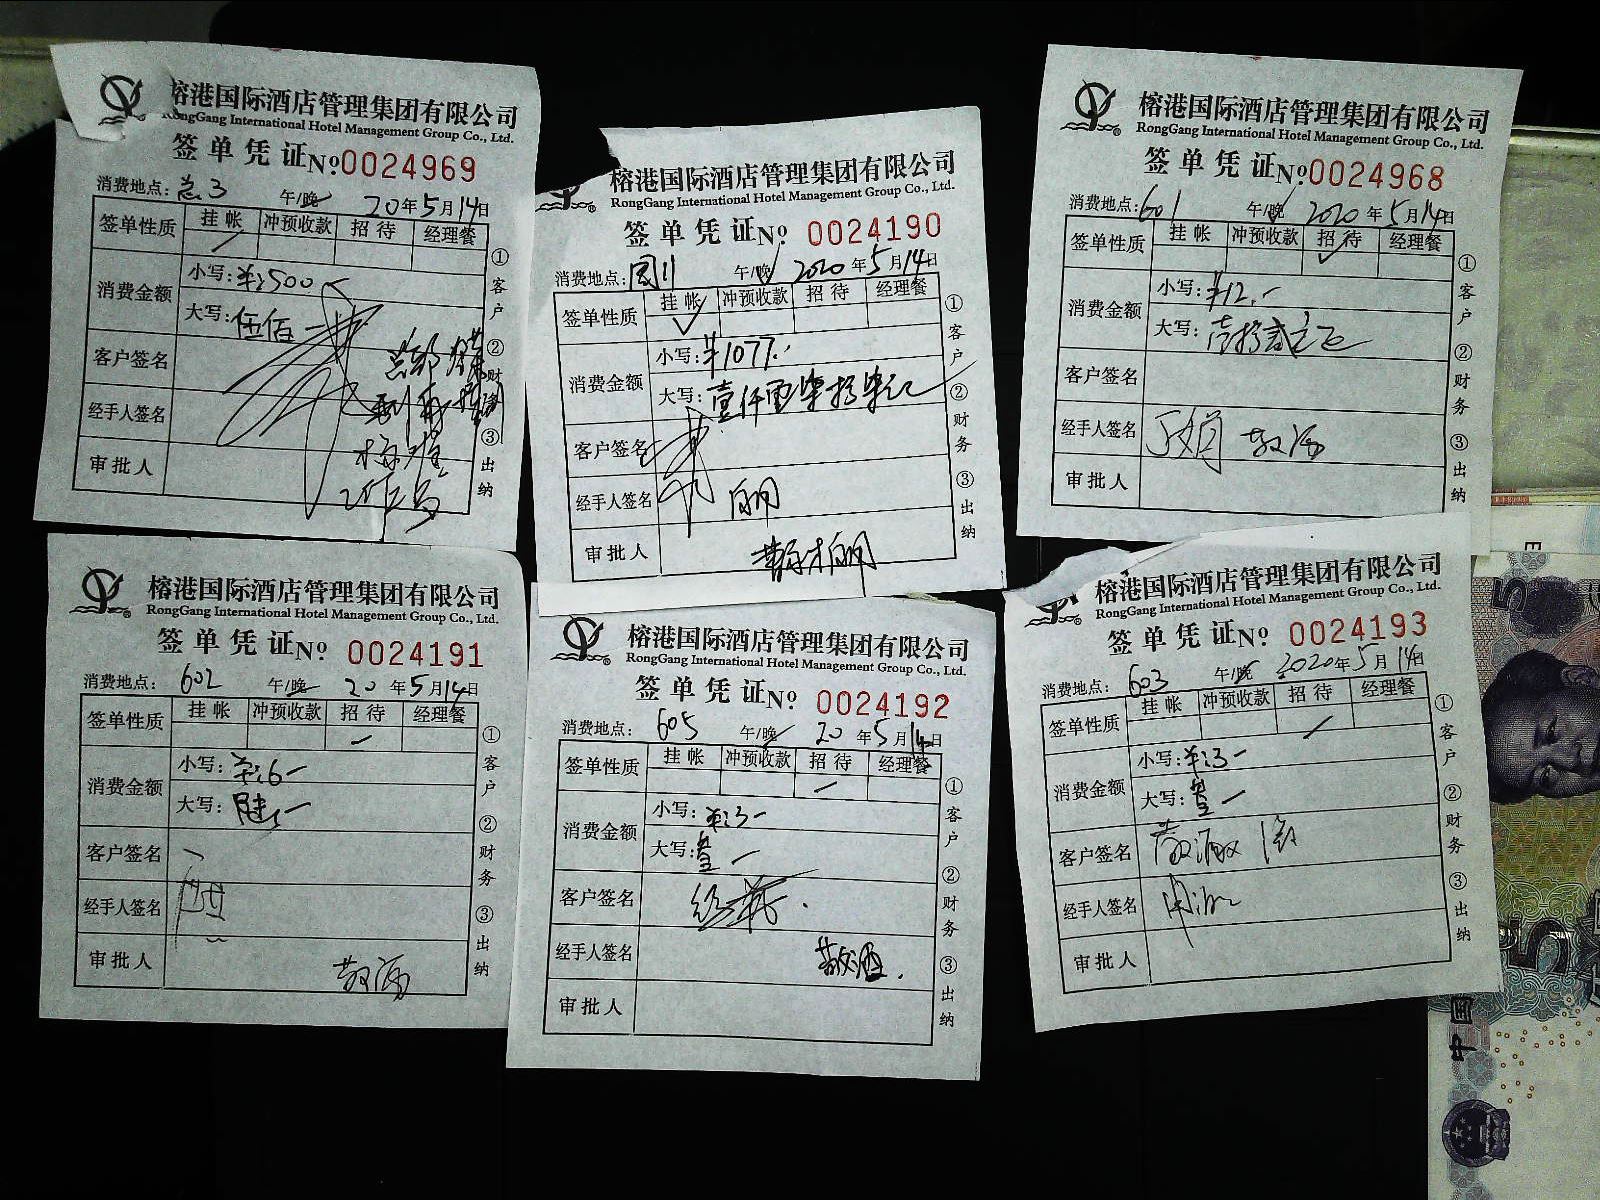 榕港国际酒店管理集团有限公司
RongGang International Hotel Management Group Co., Ltd.
签单凭证 No 0024969
消费地点: 总3 午/晚 20年5月14日
签单性质 挂帐 冲预收款 招待 经理餐
消费金额 小写: ¥:500
大写: 伍佰
客户签名
经手人签名
审批人
①客户 ②财务 ③出纳
榕港国际酒店管理集团有限公司
RongGang International Hotel Management Group Co., Ltd.
签单凭证 No 0024190
消费地点: 午/晚 2020年5月14日
签单性质 挂帐 冲预收款 招待 经理餐
消费金额 小写: ¥1077.
大写: 壹仟零柒拾柒元
客户签名
经手人签名
审批人
①客户 ②财务 ③出纳
榕港国际酒店管理集团有限公司
RongGang International Hotel Management Group Co., Ltd.
签单凭证 No 0024968
消费地点: 601 午/晚 2020年5月14日
签单性质 挂帐 冲预收款 招待 经理餐
消费金额 小写: ¥12.-
大写: 壹拾贰元正
客户签名
经手人签名 敬酒
审批人
①客户 ②财务 ③出纳
榕港国际酒店管理集团有限公司
RongGang International Hotel Management Group Co., Ltd.
签单凭证 No 0024191
消费地点: 602 午/晚 20年5月14日
签单性质 挂帐 冲预收款 招待 经理餐
消费金额 小写: ¥:6-
大写: 陆
客户签名
经手人签名
审批人 敬酒
①客户 ②财务 ③出纳
榕港国际酒店管理集团有限公司
RongGang International Hotel Management Group Co., Ltd.
签单凭证 No 0024192
消费地点: 605 午/晚 20年5月14日
签单性质 挂帐 冲预收款 招待 经理餐
消费金额 小写: ¥:3-
大写: 叁
客户签名
经手人签名 敬酒.
审批人
①客户 ②财务 ③出纳
榕港国际酒店管理集团有限公司
RongGang International Hotel Management Group Co., Ltd.
签单凭证 No 0024193
消费地点: 603 午/晚 2020年5月14日
签单性质 挂帐 冲预收款 招待 经理餐
消费金额 小写: ¥:3-
大写: 叁
客户签名
经手人签名
审批人
①客户 ②财务 ③出纳
5
5
中国